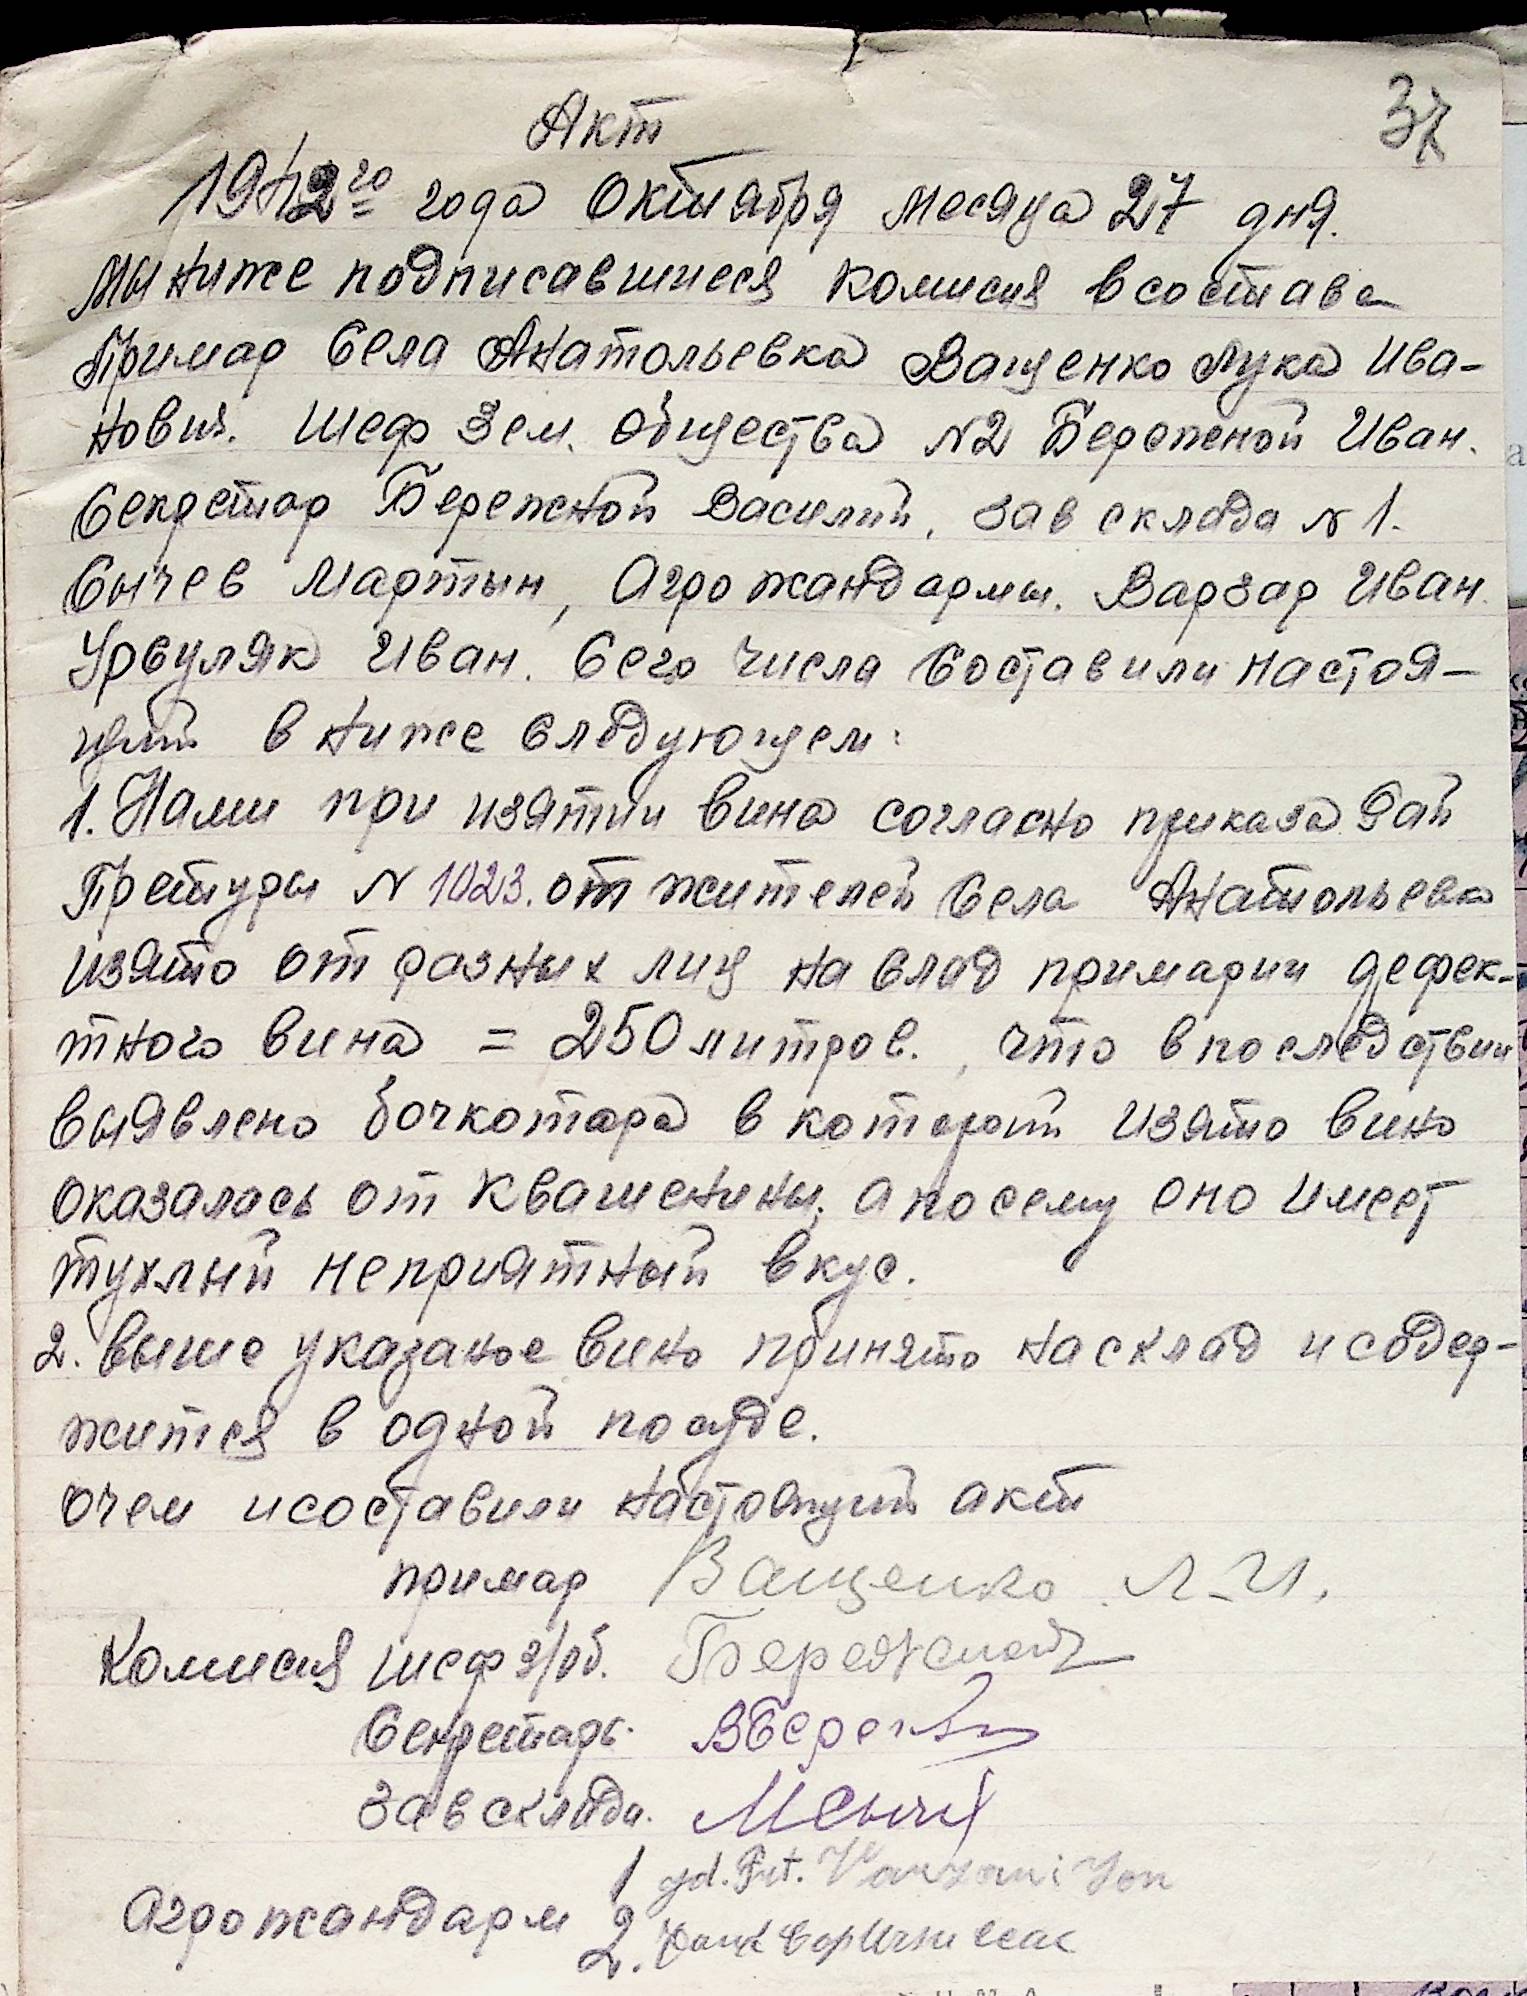 37
Акт
1942го года Октября месяца 27 дня.
Мы ниже подписавшиеся комисия в составе
Примар Села Анатольевка Ващенко Лука Ива-
нович. Шеф Зем. Общества N2 Бережной Иван.
Секретар Бережной Василий, зав склада N 1.
Сычев Мартын, Агрожандармы. Варзар Иван.
Урсуляк Иван. Сего числа Составили настоя-
щий в ниже следующем:
1. Нами при изятии вина согласно приказа Рай
Претуры N 1023. от жителей Села Анатольевка
изято от разных лиц на склад примарии дефек-
тного вина = 250 литров., что в последствии
выявлено бочкотара в которой изято вино
оказалась от квашенины, а посему оно имеет
тухлый неприятный вкус.
2. выше указаное вино принято на склад и содер-
жится в одной посуде.
О чем и составили настоящий акт
примар Ващенко Л.И.
Комисия шеф з/об. Бережной
Секретарь. ВБереж
Зав склада. МСыч
1
Агрожандарм 2.